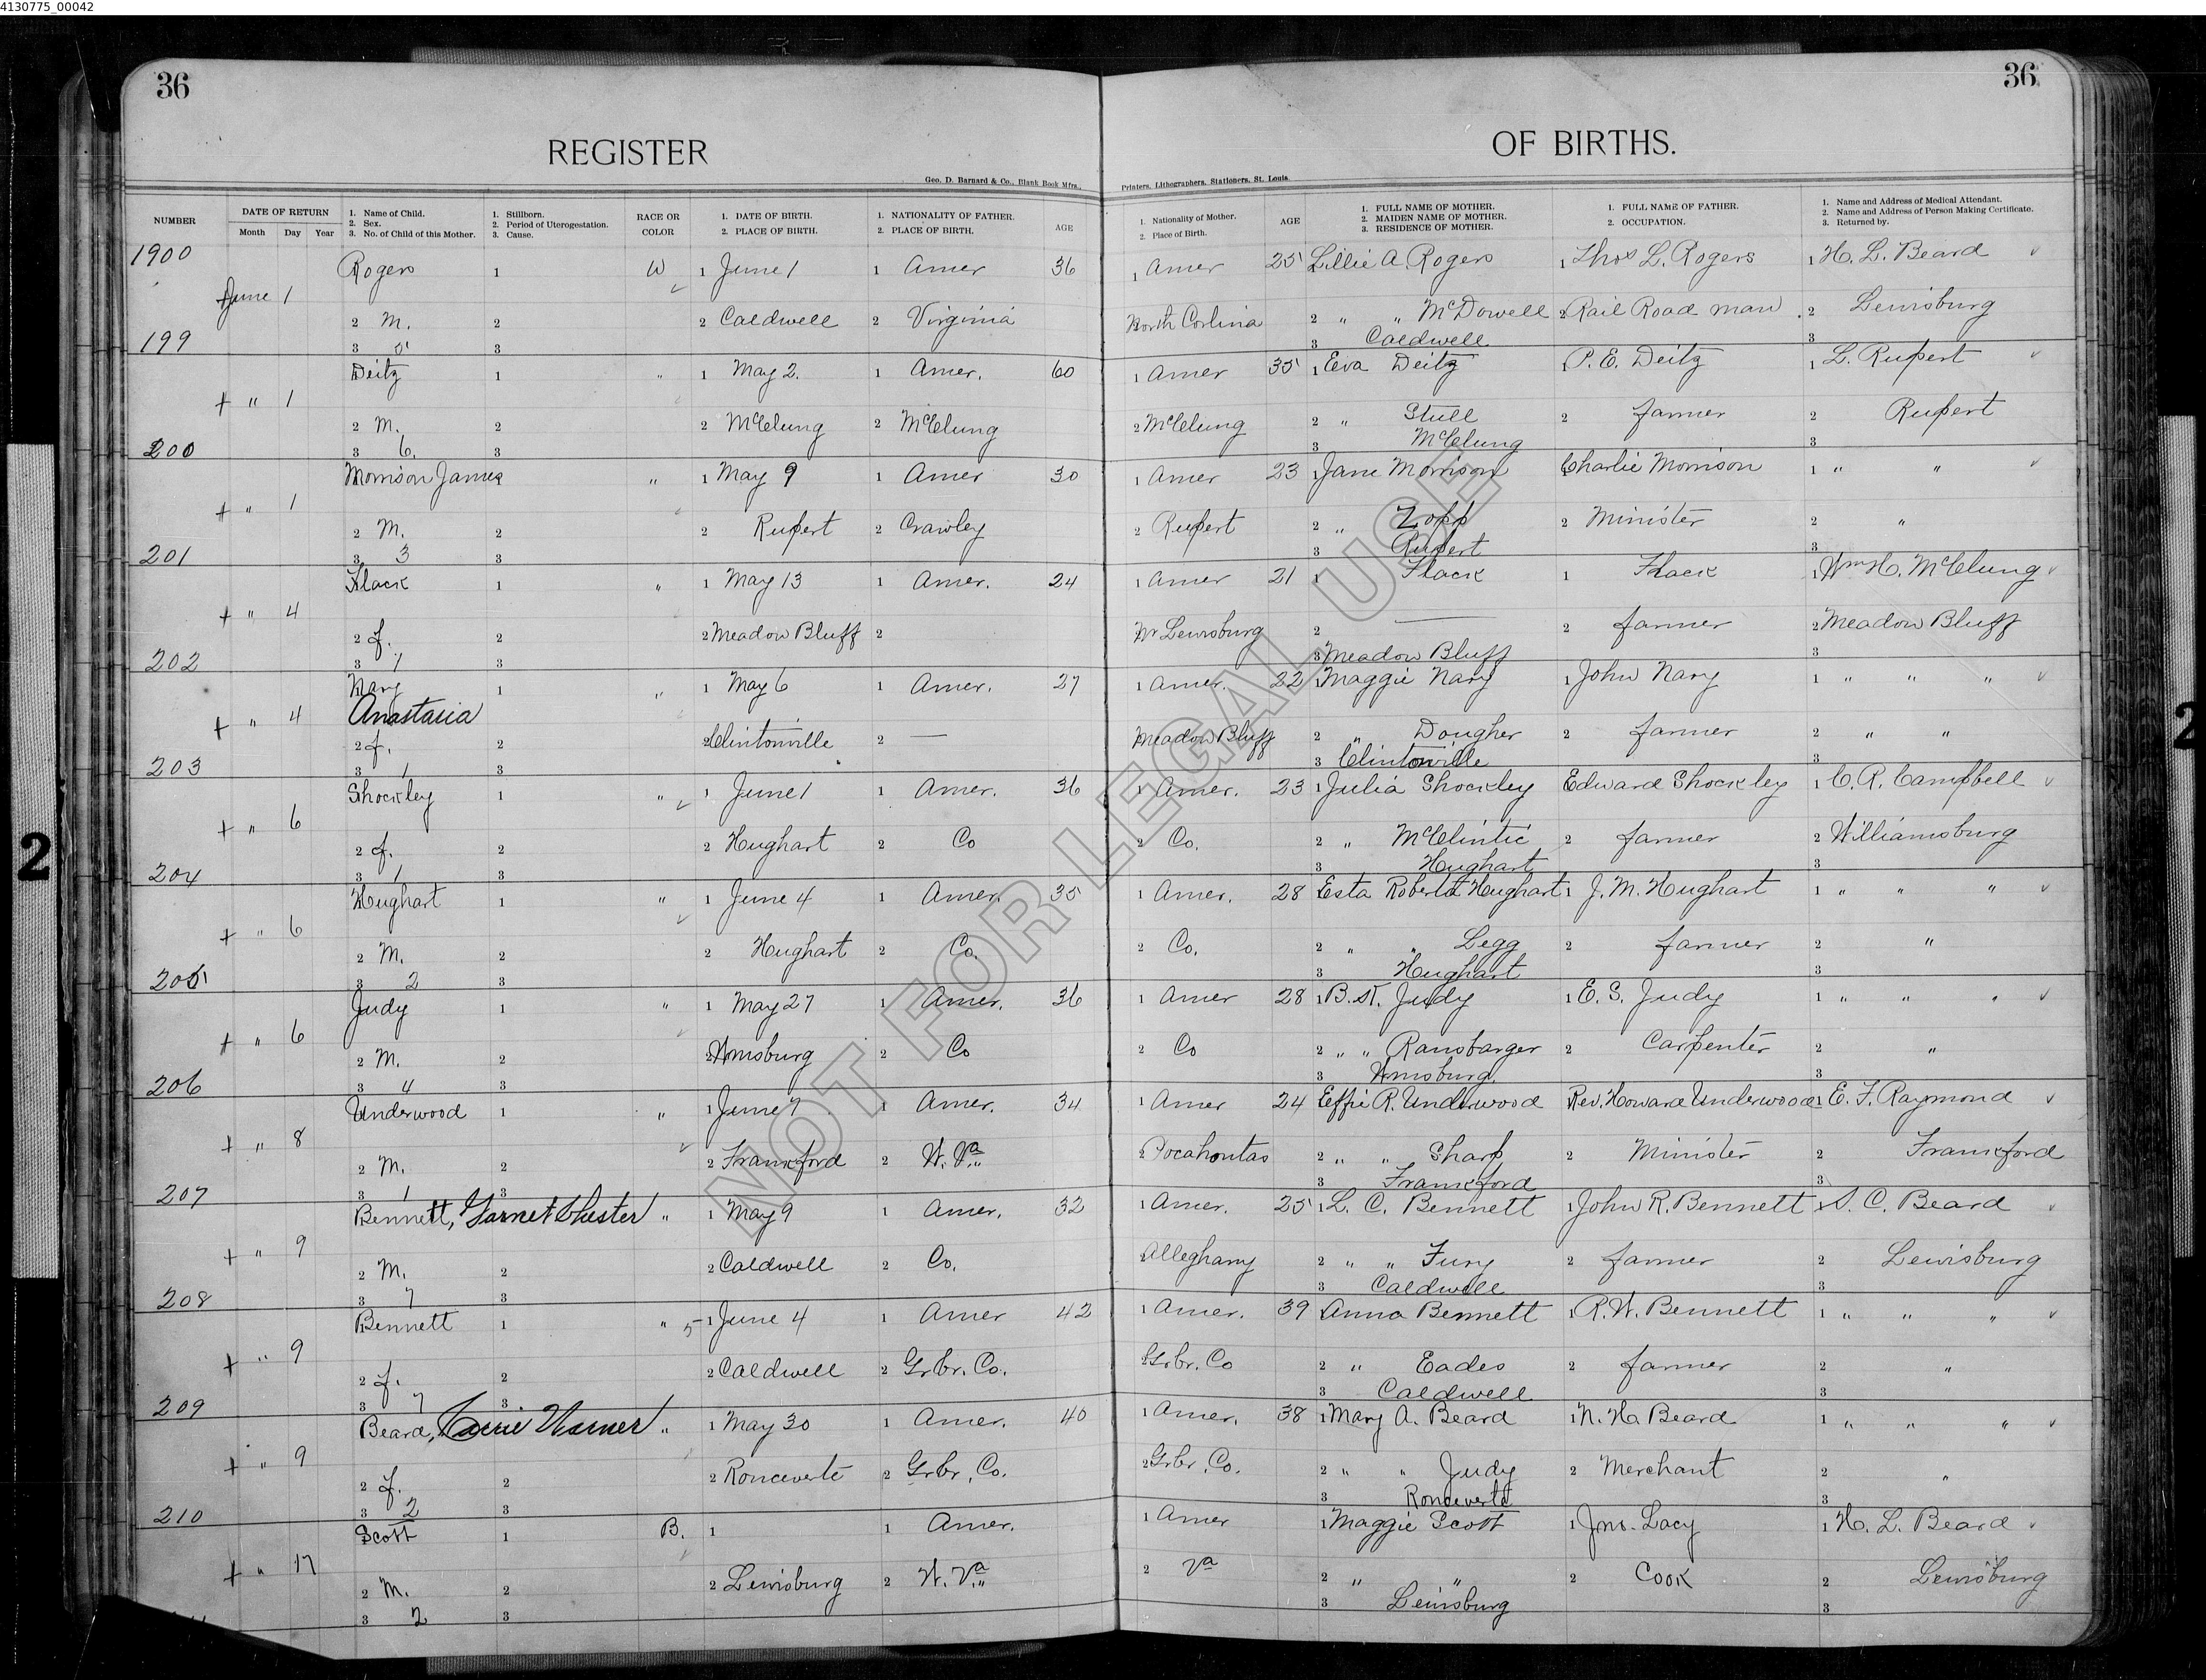 4130775_00042
36
36
REGISTER
OF BIRTHS.
Geo. D. Barnard & Co., Blank Book Mfrs.,
Printers, Lithographers, Stationers, St. Louis.
NUMBER
DATE OF RETURN
Month Day Year
1. Name of Child.
2. Sex.
3. No. of Child of this Mother.
1. Stillborn.
2. Period of Uterogestation.
3. Cause.
RACE OR
COLOR
1. DATE OF BIRTH.
2. PLACE OF BIRTH.
1. NATIONALITY OF FATHER.
2. PLACE OF BIRTH.
AGE
1. Nationality of Mother.
2. Place of Birth.
AGE
1. FULL NAME OF MOTHER.
2. MAIDEN NAME OF MOTHER.
3. RESIDENCE OF MOTHER.
1. FULL NAME OF FATHER.
2. OCCUPATION.
1. Name and Address of Medical Attendant.
2. Name and Address of Person Making Certificate.
3. Returned by.
1900
Rogers 1 W 1 June 1 1 Amer 36 1 Amer 25 Lillie A. Rogers 1 Thos L. Rogers 1 H. L. Beard
June 1
2 M. 2 2 Caldwell 2 Virginia North Corlina 2 " " McDowell 2 Rail Road man 2 Lewisburg
199 3 5 3 3 Caldwell 3
Deitz 1 " 1 May 2. 1 Amer. 60 1 Amer 35 1 Eva Deitz P. E. Deitz 1 L. Rupert
+ " 1
2 M. 2 2 McClung 2 McClung 2 McClung 2 " Stull 2 farmer 2 Rupert
200 3 6. 3 3 McClung 3
Morrison James " 1 May 9 1 Amer 30 1 Amer 23 1 Jane Morrison Charlie Morrison 1 " "
+ " 1
2 M. 2 2 Rupert 2 Crawley 2 Rupert 2 " Zopp 2 Minister 2 "
201 3 3 3 3 Rupert 3
Flack 1 " 1 May 13 1 Amer. 24 1 Amer 21 1 Flack 1 Flack 1 Wm H. McClung
+ " 4
2 f. 2 2 Meadow Bluff 2 Nr Lewisburg 2 — 2 farmer 2 Meadow Bluff
202 3 1 3 3 Meadow Bluff 3
Nary 1 " 1 May 6 1 Amer. 27 1 Amer. 22 1 Maggie Nary 1 John Nary 1 " " "
+ " 4 Anastasia
2 f. 2 2 Clintonville 2 — Meadow Bluff 2 " Dougher 2 farmer 2 " "
203 3 1 3 3 Clintonville 3
Shockley 1 " 1 June 1 1 Amer. 36 1 Amer. 23 1 Julia Shockley Edward Shockley 1 C. R. Campbell
+ " 6
2 f. 2 2 Hughart 2 Co 2 Co. 2 " McClintic 2 farmer 2 Williamsburg
204 3 1 3 3 Hughart 3
Hughart 1 " 1 June 4 1 Amer. 35 1 Amer. 28 Esta Roberta Hughart 1 J. M. Hughart 1 " " "
+ " 6
2 M. 2 2 Hughart 2 Co. 2 Co. 2 " " Legg 2 farmer 2 "
205 3 2 3 3 Hughart 3
Judy 1 " 1 May 27 1 Amer. 36 1 Amer 28 1 B. K. Judy 1 E. S. Judy 1 " " "
+ " 6
2 M. 2 2 Wmsburg 2 Co 2 Co 2 " " Ransbarger 2 Carpenter 2 "
206 3 4 3 3 Wmsburg. 3
Underwood 1 " 1 June 7 1 Amer. 34 1 Amer 24 Effie R. Underwood Rev. Howard Underwood 1 E. F. Raymond
+ " 8
2 M. 2 2 Frankford 2 W. Va. 2 Pocahontas 2 " " Sharp 2 Minister 2 Frankford
207 3 1 3 3 Frankford 3
Bennett, Garnet Chester " 1 May 9 1 Amer. 32 1 Amer. 25 1 L. C. Bennett 1 John R. Bennett 1 S. C. Beard
+ " 9
2 M. 2 2 Caldwell 2 Co. Alleghany 2 " " Fury 2 farmer 2 Lewisburg
208 3 7 3 3 Caldwell 3
Bennett 1 " 5 1 June 4 1 Amer 42 1 Amer. 39 Anna Bennett 1 R. W. Bennett 1 " " "
+ " 9
2 f. 2 2 Caldwell 2 Grbr. Co. 2 Grbr. Co 2 " Eades 2 farmer 2 "
209 3 7 3 3 Caldwell 3
Beard, Carrie Warner " 1 May 30 1 Amer. 40 1 Amer. 38 1 Mary A. Beard 1 W. H. Beard 1 " " "
+ " 9
2 f. 2 2 Ronceverte 2 Grbr. Co. 2 Grbr. Co. 2 " " Judy 2 Merchant 2 "
210 3 2 3 3 Ronceverte 3
Scott 1 B. 1 1 Amer. 1 Amer 1 Maggie Scott 1 Jno. Lacy 1 H. L. Beard
+ " 17
2 M. 2 2 Lewisburg 2 W. Va. 2 Va 2 " " 2 Cook 2 Lewisburg
3 2 3 3 Lewisburg 3
NOT FOR LEGAL USE
2
2